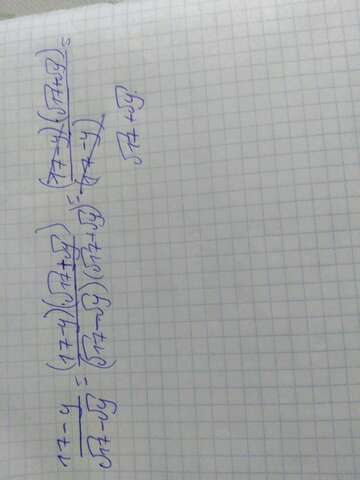 17-y / √17-√y = (17-y)(√17+√y) / (√17-√y)(√17+√y) = (17-y)(√17+√y) / (17-y) =
√17+√y